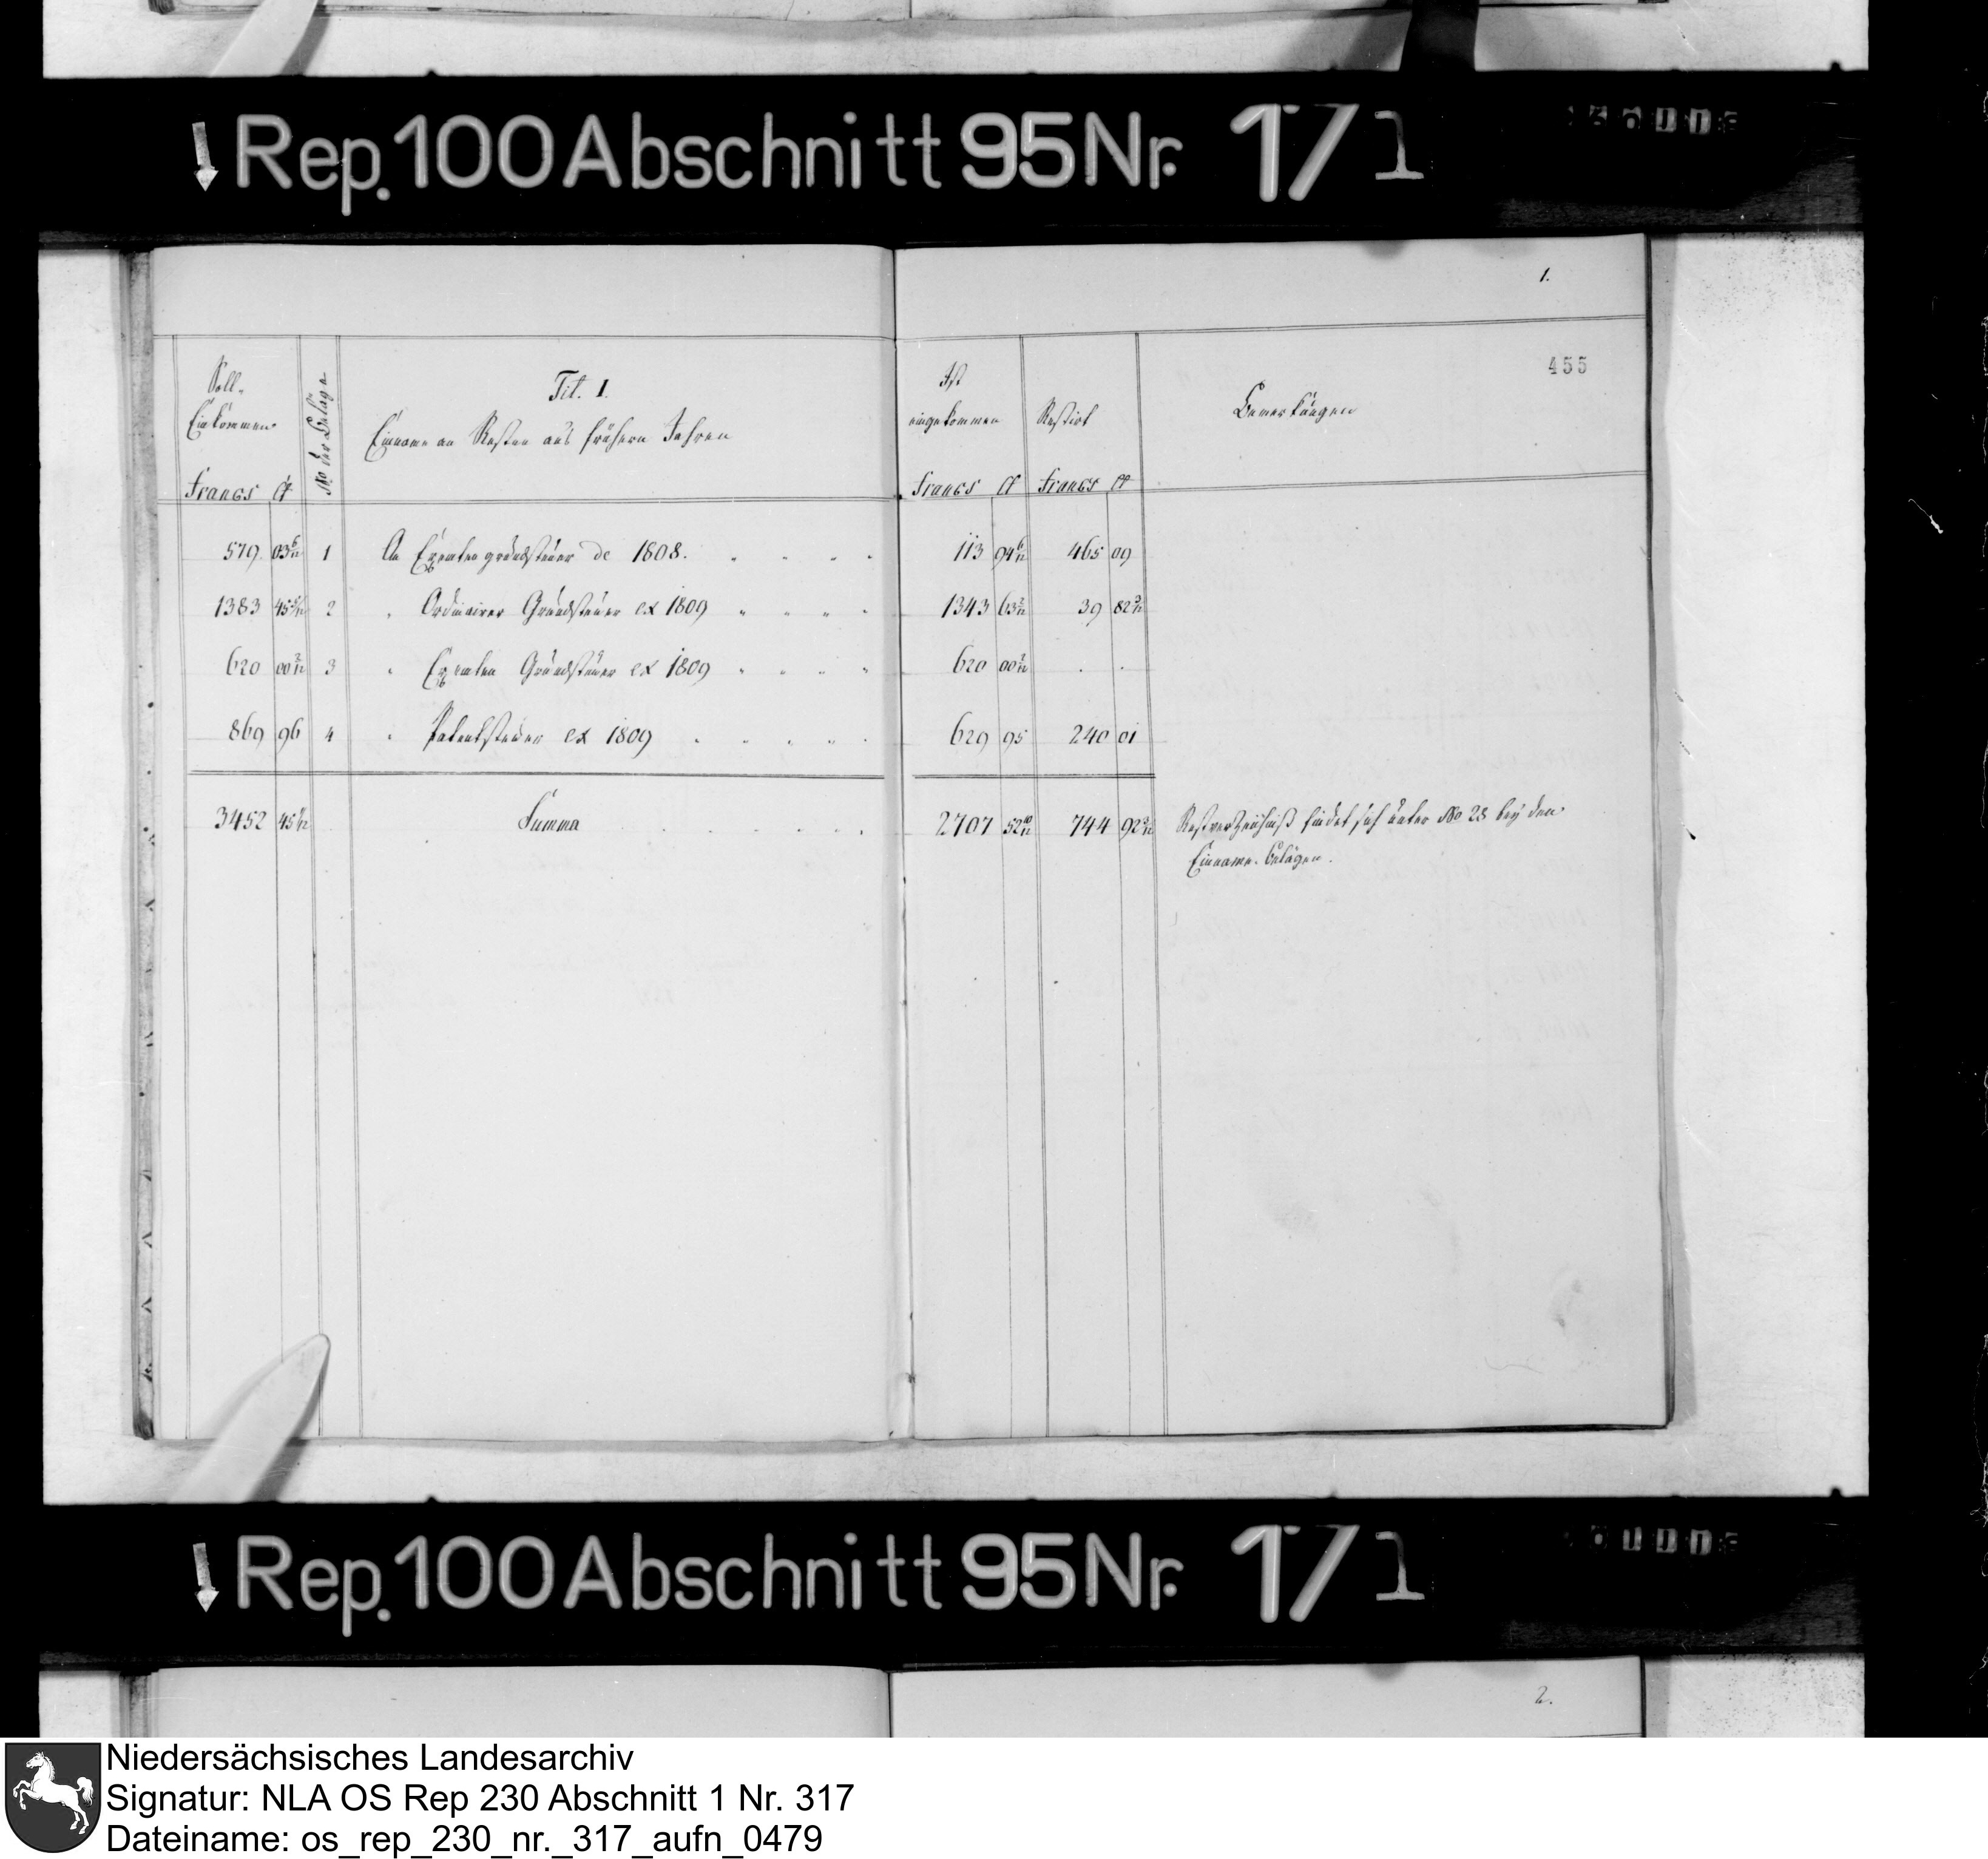 ↓ Rep. 100 Abschnitt 95 Nr. 1/1
1.
455
Soll-
Einkommen
Francs Ct
No der Beläge
Tit. I.
Einname an Resten aus frühern Jahren
Ist
eingekommen
Francs Ct
Restirt
Francs Ct
Bemerkungen
579 03 6/12 1 An Exemtengrundsteuer de 1808. 113 94 6/12 465 09
1383 45 5/12 2 " Ordinairer Grundsteuer ex 1809 1343 63 2/12 39 82 3/12
620 00 2/12 3 " Exemten Grundsteuer ex 1809 620 00 2/12 . .
869 96 4 " Patentsteuer ex 1809 629 95 240 01
3452 45 1/12 Summa 2707 52 10/12 744 92 3/12 Restverzeichniß findet sich unter No 28 bey den
Einname-Belägen.
↓ Rep. 100 Abschnitt 95 Nr. 1/1
2.
Niedersächsisches Landesarchiv
Signatur: NLA OS Rep 230 Abschnitt 1 Nr. 317
Dateiname: os_rep_230_nr._317_aufn_0479